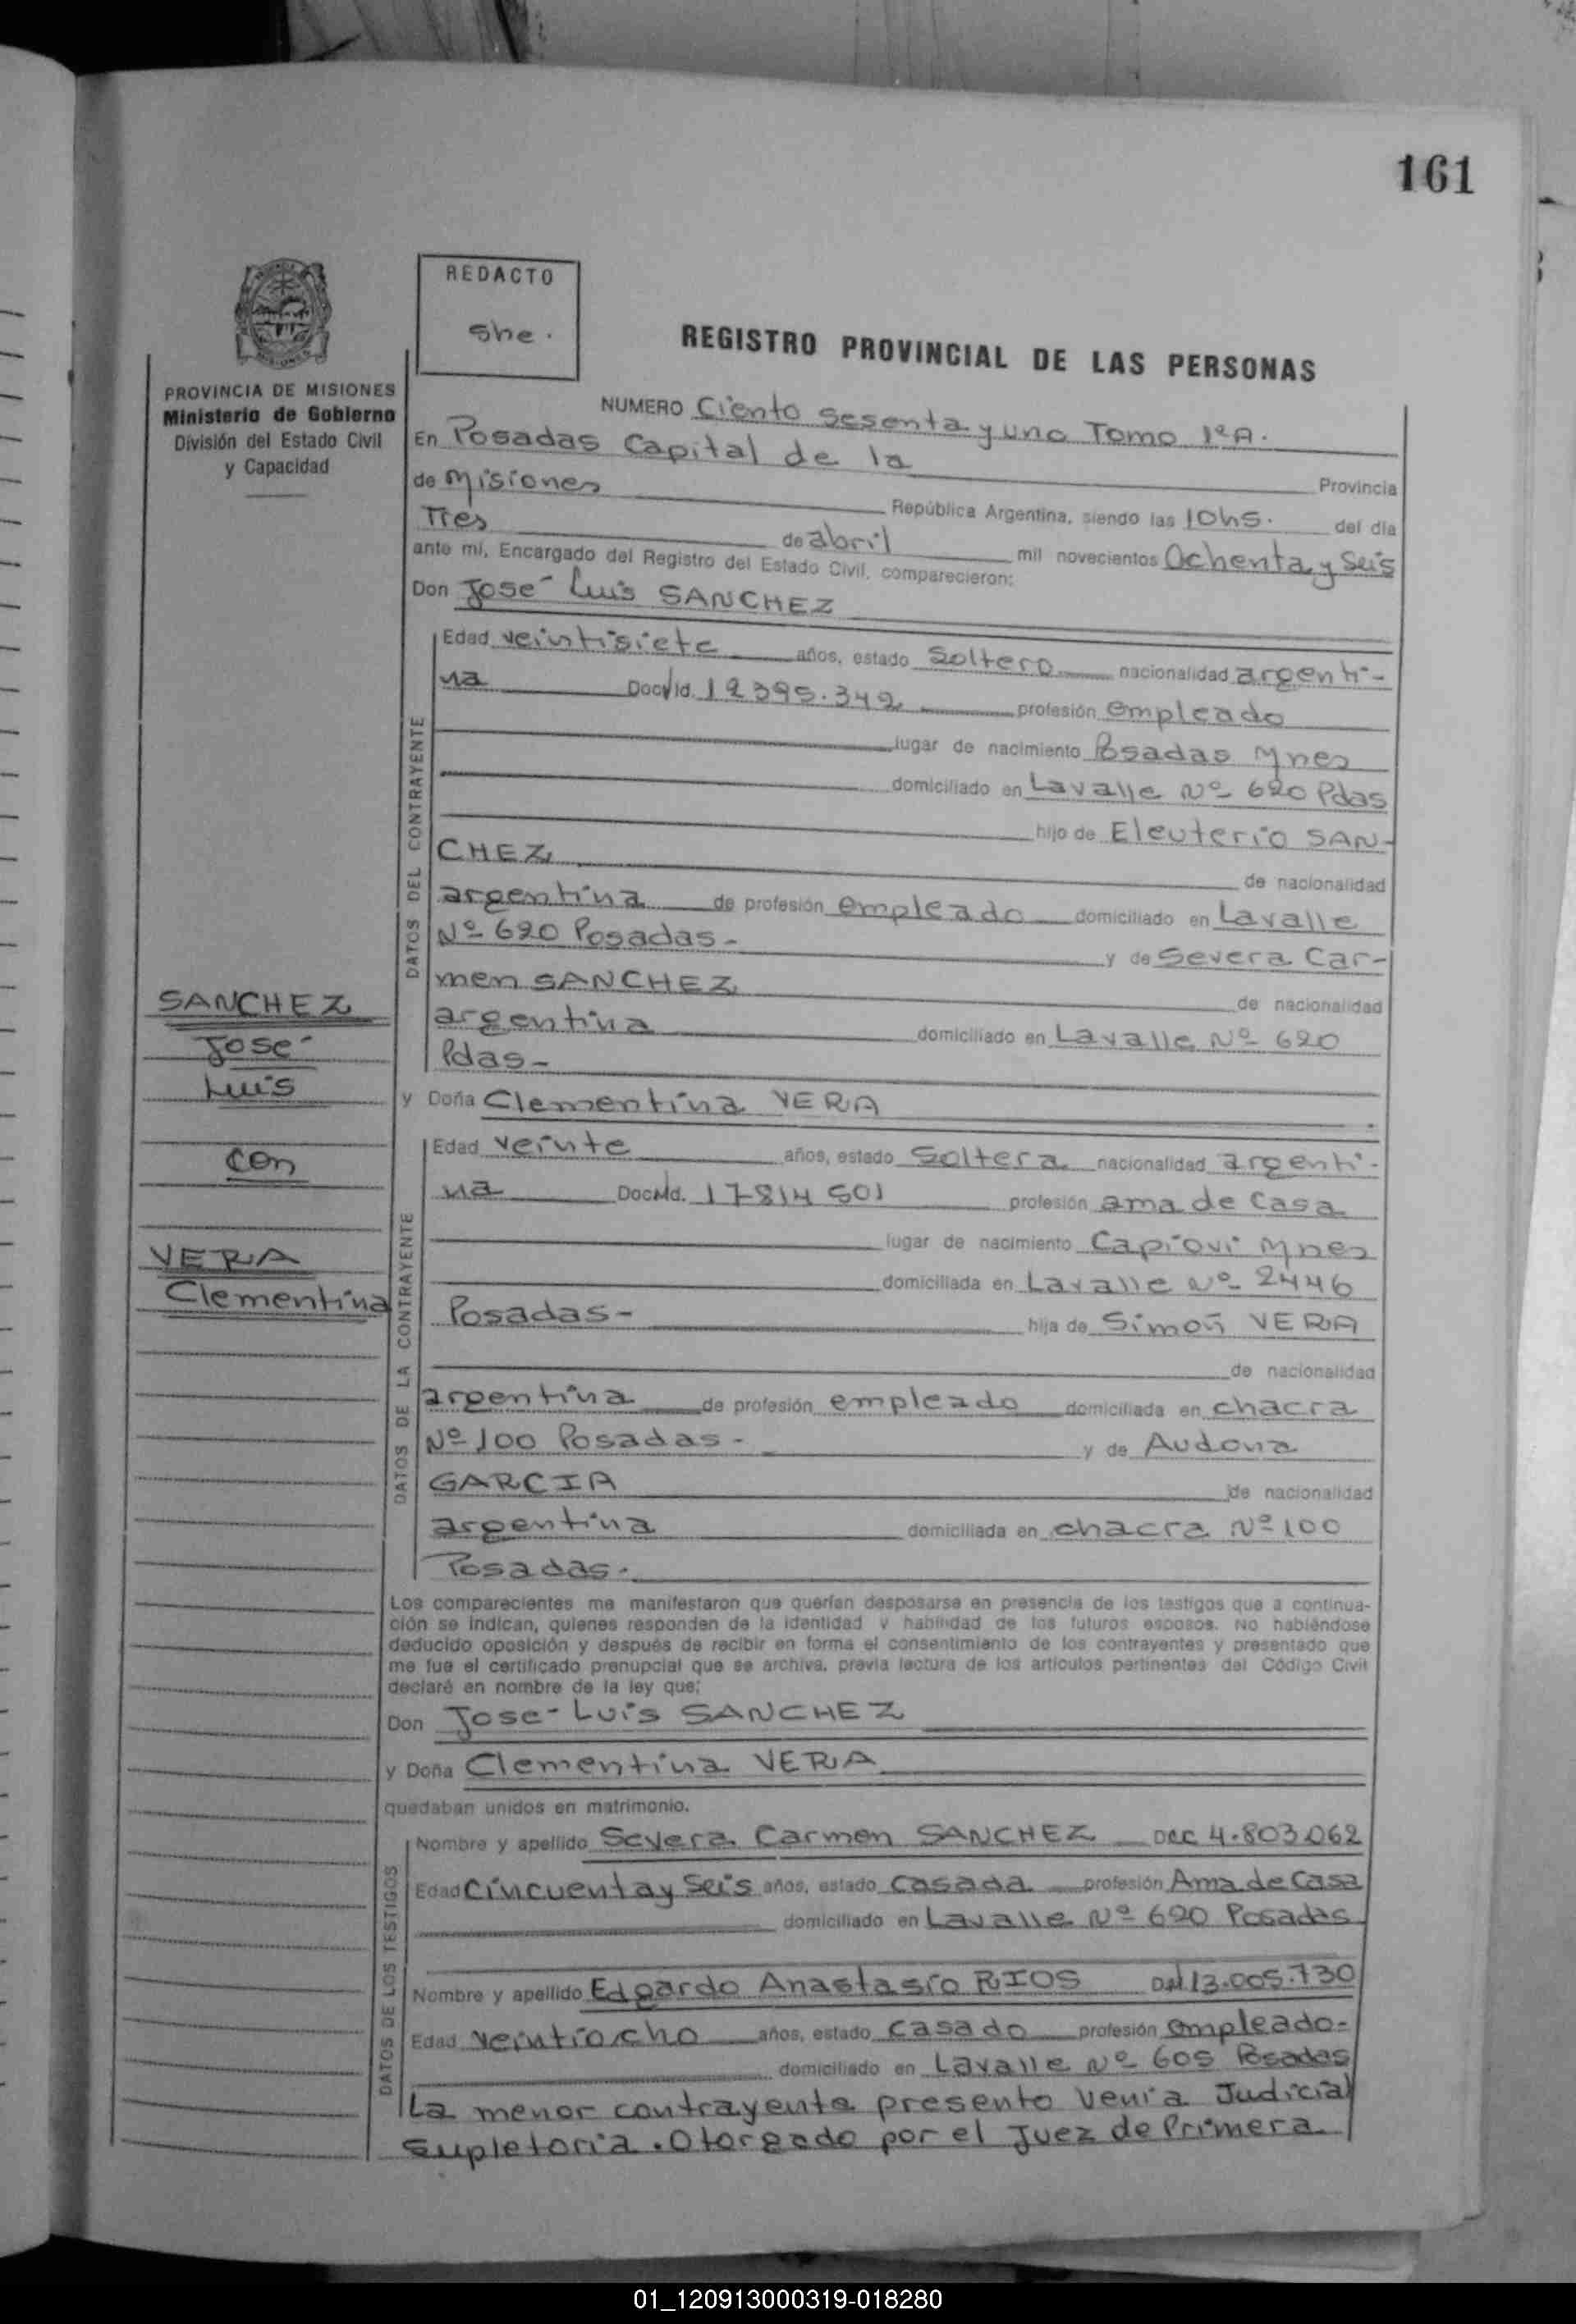 161
REDACTO
she.
REGISTRO PROVINCIAL DE LAS PERSONAS
PROVINCIA DE MISIONES
Ministerio de Gobierno
División del Estado Civil
y Capacidad
NUMERO Ciento sesenta y uno Tomo 1º A.
En Posadas Capital de la Provincia
de Misiones República Argentina, siendo las 10hs. del día
Tres de abril mil novecientos Ochenta y Seis
ante mí, Encargado del Registro del Estado Civil, comparecieron:
Don José Luis SANCHEZ
DATOS DEL CONTRAYENTE
Edad veintisiete años, estado Soltero nacionalidad argenti-
na Doc. Id. 12395.342 profesión empleado
lugar de nacimiento Posadas Mnes
domiciliado en Lavalle Nº 620 Pdas
hijo de Eleuterio SAN-
CHEZ de nacionalidad
argentina de profesión empleado domiciliado en Lavalle
Nº 620 Posadas- y de Severa Car-
men SANCHEZ de nacionalidad
argentina domiciliado en Lavalle Nº 620
Pdas-
SANCHEZ
José
Luis
con
VERA
Clementina
y Doña Clementina VERA
DATOS DE LA CONTRAYENTE
Edad veinte años, estado Soltera nacionalidad argenti-
na Doc. Id. 17814501 profesión ama de Casa
lugar de nacimiento Capiovi Mnes
domiciliada en Lavalle Nº 2446
Posadas- hija de Simón VERA
de nacionalidad
argentina de profesión empleado domiciliada en chacra
Nº 100 Posadas- y de Audona
GARCIA de nacionalidad
argentina domiciliada en chacra Nº 100
Posadas.
Los comparecientes me manifestaron que querían desposarse en presencia de los testigos que a continua-
ción se indican, quienes responden de la identidad y habilidad de los futuros esposos. No habiéndose
deducido oposición y después de recibir en forma el consentimiento de los contrayentes y presentado que
me fue el certificado prenupcial que se archiva, previa lectura de los artículos pertinentes del Código Civil
declaré en nombre de la ley que:
Don José Luis SANCHEZ
y Doña Clementina VERA
quedaban unidos en matrimonio.
DATOS DE LOS TESTIGOS
Nombre y apellido Severa Carmen SANCHEZ 4.803.062
Edad Cincuenta y Seis años, estado Casada profesión Ama de Casa
domiciliado en Lavalle Nº 620 Posadas
Nombre y apellido Edgardo Anastasio RIOS 13.005.730
Edad veintiocho años, estado Casado profesión empleado-
domiciliado en Lavalle Nº 605 Posadas
La menor contrayente presento venia Judicial
Supletoria. Otorgado por el Juez de Primera
01_120913000319-018280